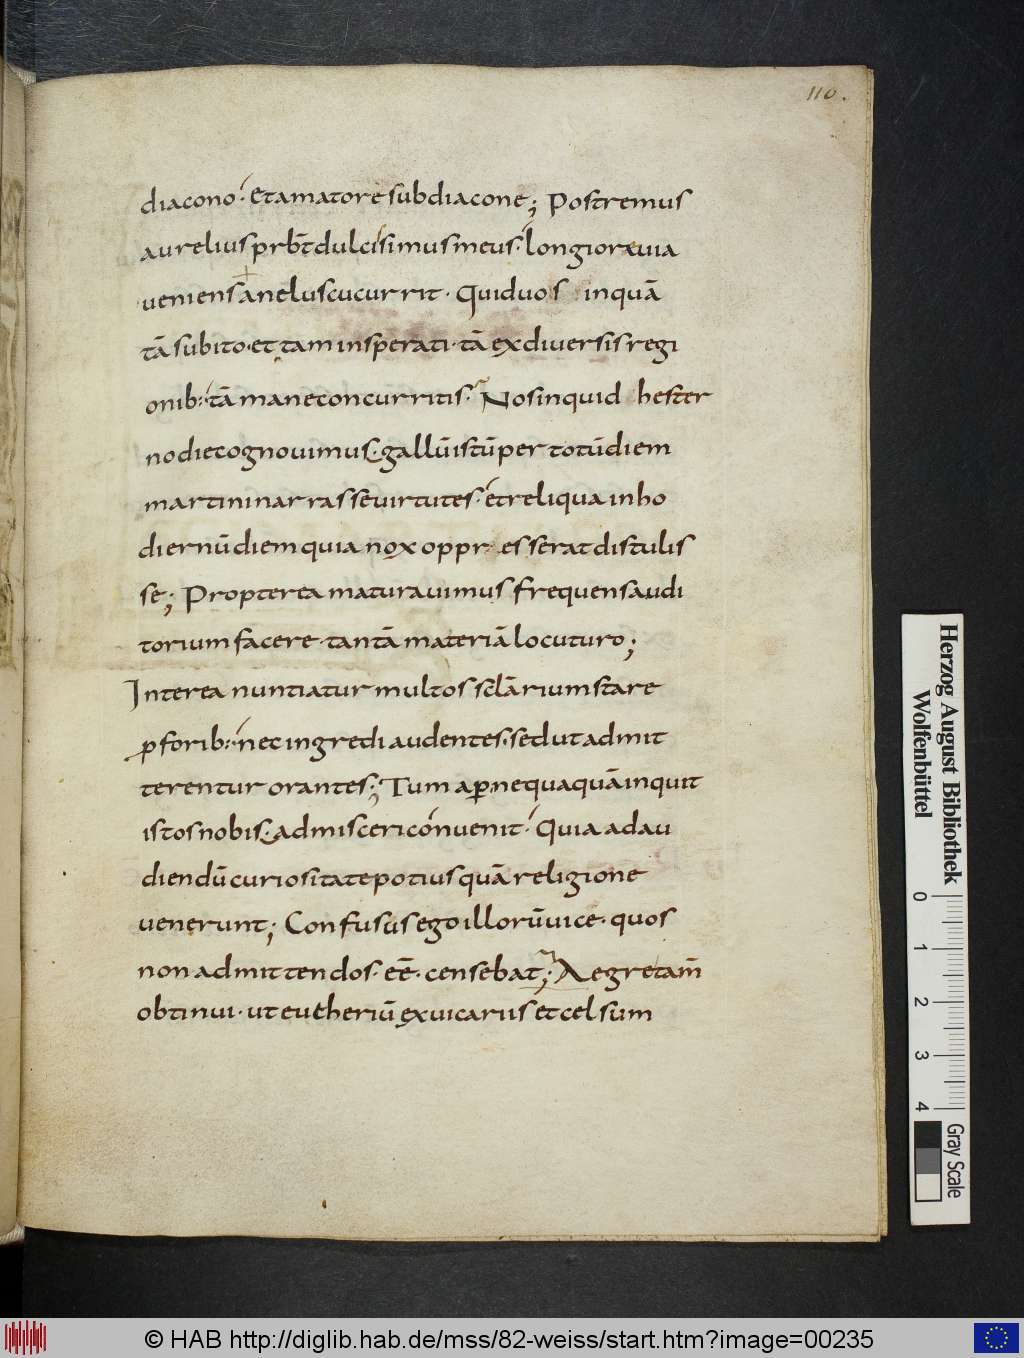 110.
diacono· Et amatore subdiacone; Postremus
aurelius prƀt dulcissimus meus· longiore via
veniens anelus cucurrit· Quid vos inquā
tā subito· et tam insperati· tā ex diversis regi
onib:· tā mane concurritis· Nos inquid hester
no die cognovimus· gallū istū per totū diem
martini narrasse virtutes· et reliqua in ho
diernū diem quia nox oppresserat distulis
se; Propterea maturavimus frequens audi
torium facere· tantā materiā locuturo;
Interea nuntiatur multos sclārium stare
ꝓ forib:· nec ingredi audentes· sed ut admit
terentur orantes; Tum aper nequaquā inquit
istos nobis· admisceri convenit· Quia ad au
diendū curiositate potius quā religione
venerunt; Confusus ego illorū vice· quos
non admittendos· eē· censebat; Aegre tam̄
obtinui· ut eutheriū ex vicariis et celsum
Herzog August Bibliothek
Wolfenbüttel
0 1 2 3 4
Gray Scale
© HAB http://diglib.hab.de/mss/82-weiss/start.htm?image=00235